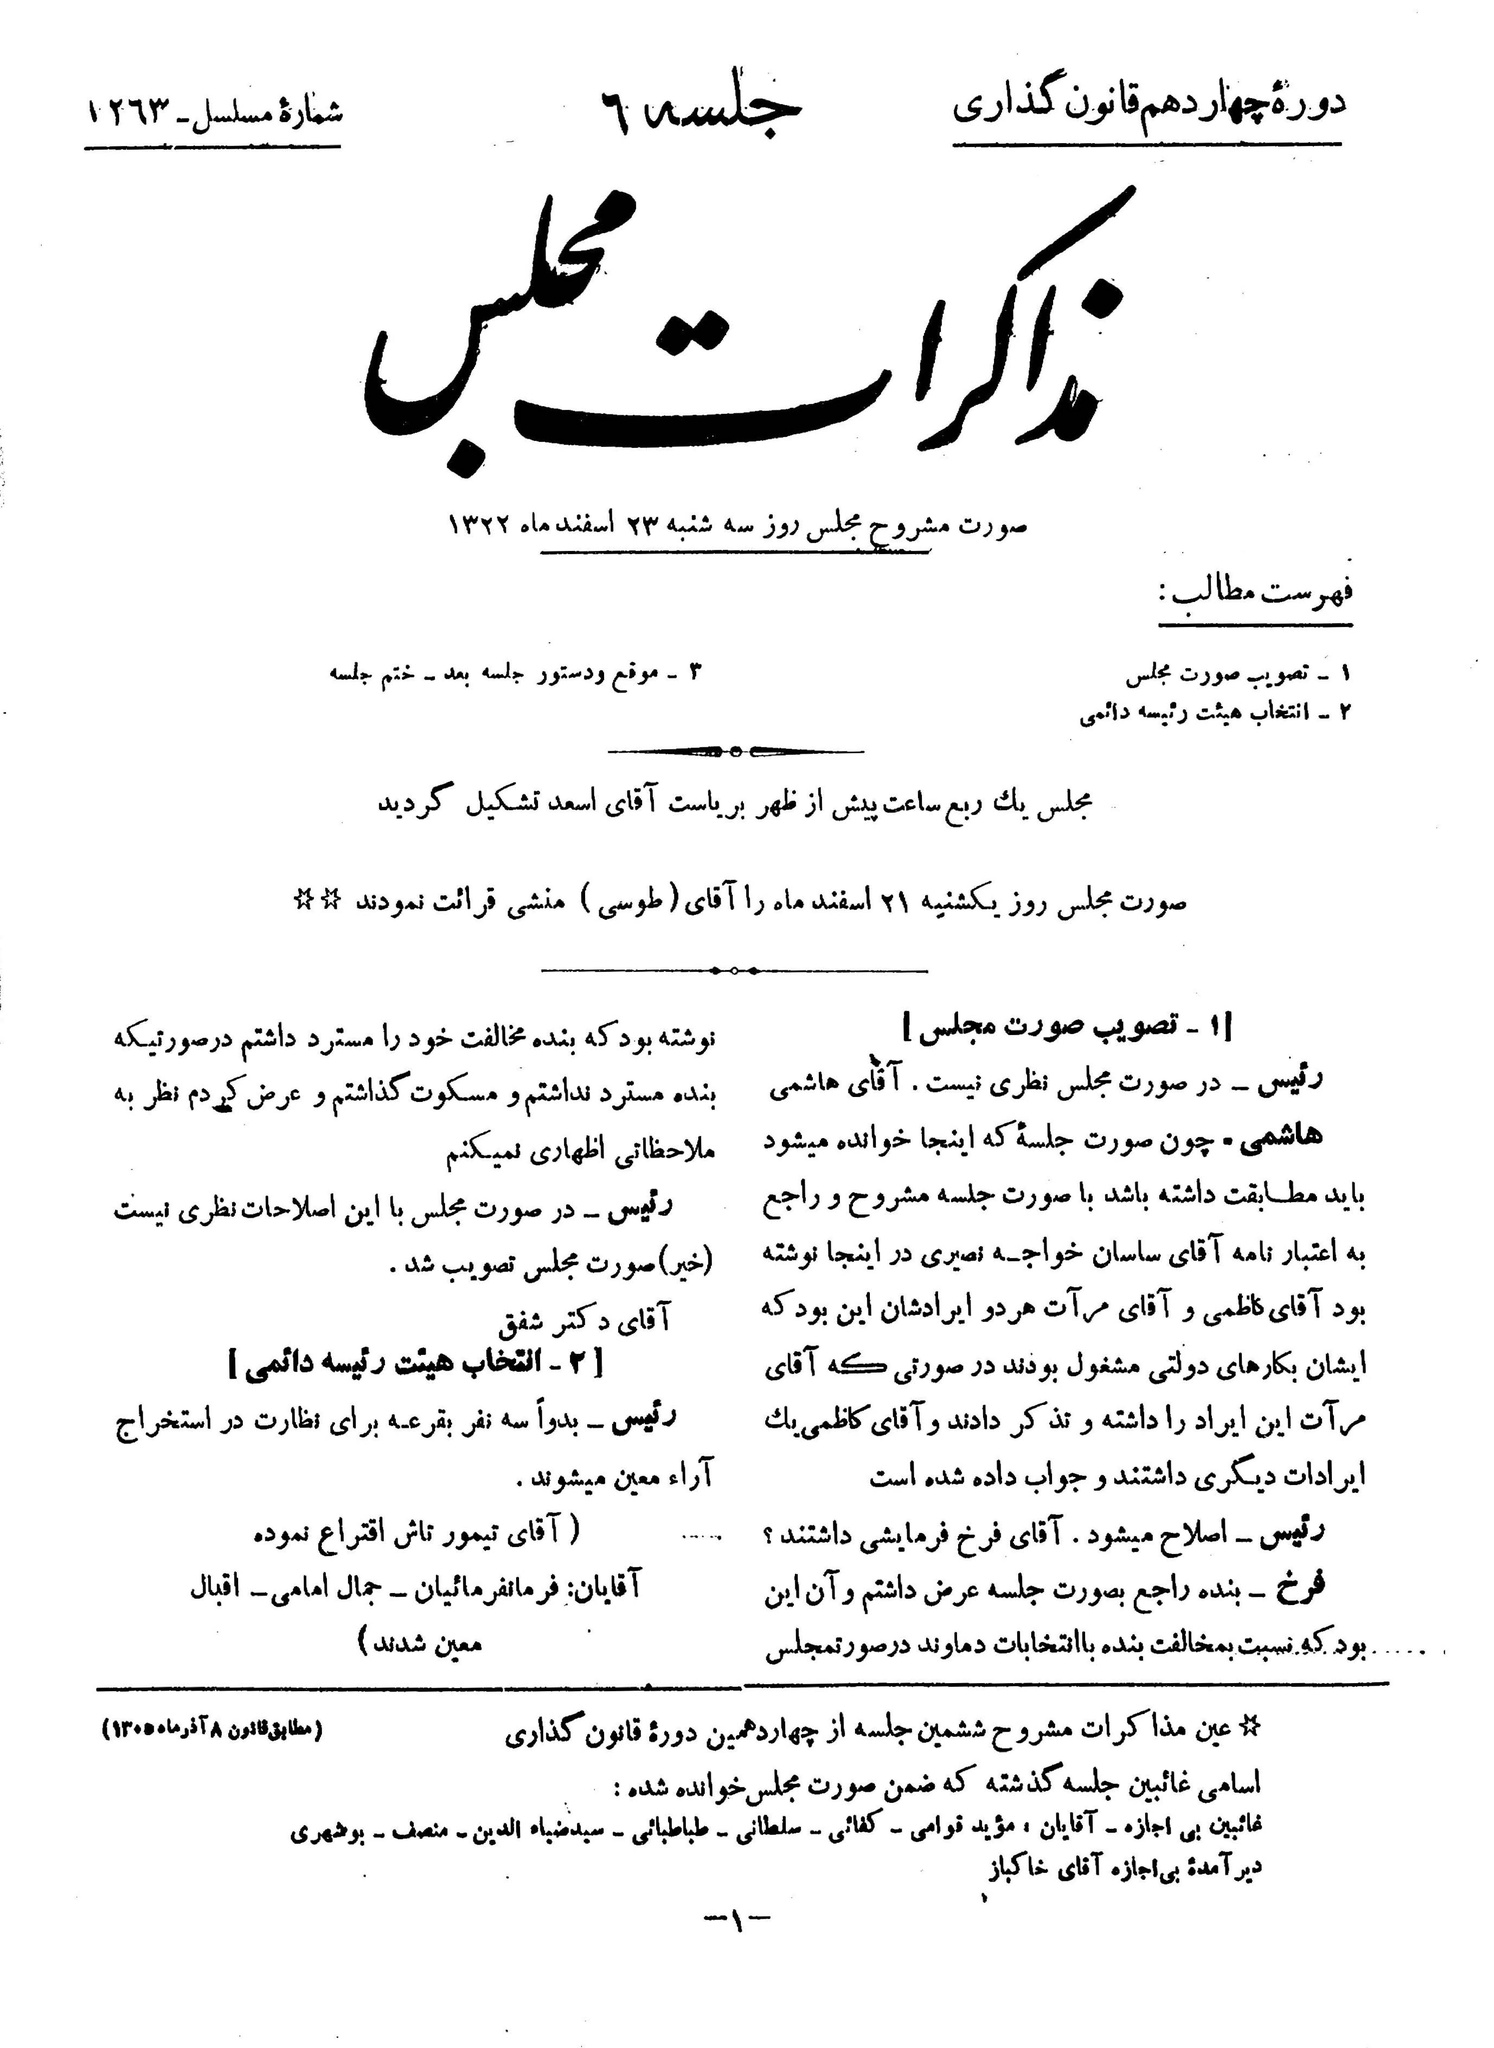 دورهٔ چهاردهم قانون گذاری
جلسه ٦
شمارهٔ مسلسل ـ ۱۲٦۳
مذاکرات مجلس
صورت مشروح مجلس روز سه شنبه ۲۳ اسفند ماه ۱۳۲۲
فهرست مطالب :
۱ ـ تصویب صورت مجلس
۲ ـ انتخاب هیئت رئیسه دائمی
۳ ـ موقع ودستور جلسه بعد ـ ختم جلسه
مجلس یك ربع ساعت پیش از ظهر بریاست آقای اسعد تشکیل گردید
صورت مجلس روز یکشنبه ۲۱ اسفند ماه را آقای (طوسی) منشی قرائت نمودند ☆☆
[۱ ـ تصویب صورت مجلس]
رئیس ـ در صورت مجلس نظری نیست . آقای هاشمی
هاشمی ـ چون صورت جلسهٔ که اینجا خوانده میشود
باید مطابقت داشته باشد با صورت جلسه مشروح و راجع
به اعتبار نامه آقای ساسان خواجه نصیری در اینجا نوشته
بود آقای کاظمی و آقای مرآت هردو ایرادشان این بود که
ایشان بکارهای دولتی مشغول بودند در صورتی که آقای
مرآت این ایراد را داشته و تذکر دادند و آقای کاظمی یك
ایرادات دیگری داشتند و جواب داده شده است
رئیس ـ اصلاح میشود . آقای فرخ فرمایشی داشتند ؟
فرخ ـ بنده راجع بصورت جلسه عرض داشتم و آن این
بود که نسبت بمخالفت بنده باانتخابات دماوند درصورتمجلس
نوشته بود که بنده مخالفت خود را مسترد داشتم درصورتیکه
بنده مسترد نداشتم و مسکوت گذاشتم و عرض کردم نظر به
ملاحظاتی اظهاری نمیکنم
رئیس ـ در صورت مجلس با این اصلاحات نظری نیست
(خیر) صورت مجلس تصویب شد .
آقای دکتر شفق
[۲ ـ انتخاب هیئت رئیسه دائمی]
رئیس ـ بدواً سه نفر بقرعه برای نظارت در استخراج
آراء معین میشوند .
( آقای تیمور تاش اقتراع نموده
آقایان: فرمانفرمائیان ـ جمال امامی ـ اقبال
معین شدند)
☆ عین مذاکرات مشروح ششمین جلسه از چهاردهمین دورهٔ قانون گذاری (مطابق قانون ۸ آذر ماه ۱۳۰۵)
اسامی غائبین جلسه گذشته که ضمن صورت مجلس خوانده شده :
غائبین بی اجازه ـ آقایان : مؤید قوامی ـ کفائی ـ سلطانی ـ طباطبائی ـ سیدضیاء الدین ـ منصف ـ بوشهری
دیر آمدهٔ بی اجازه آقای خاکباز
ـ۱ـ